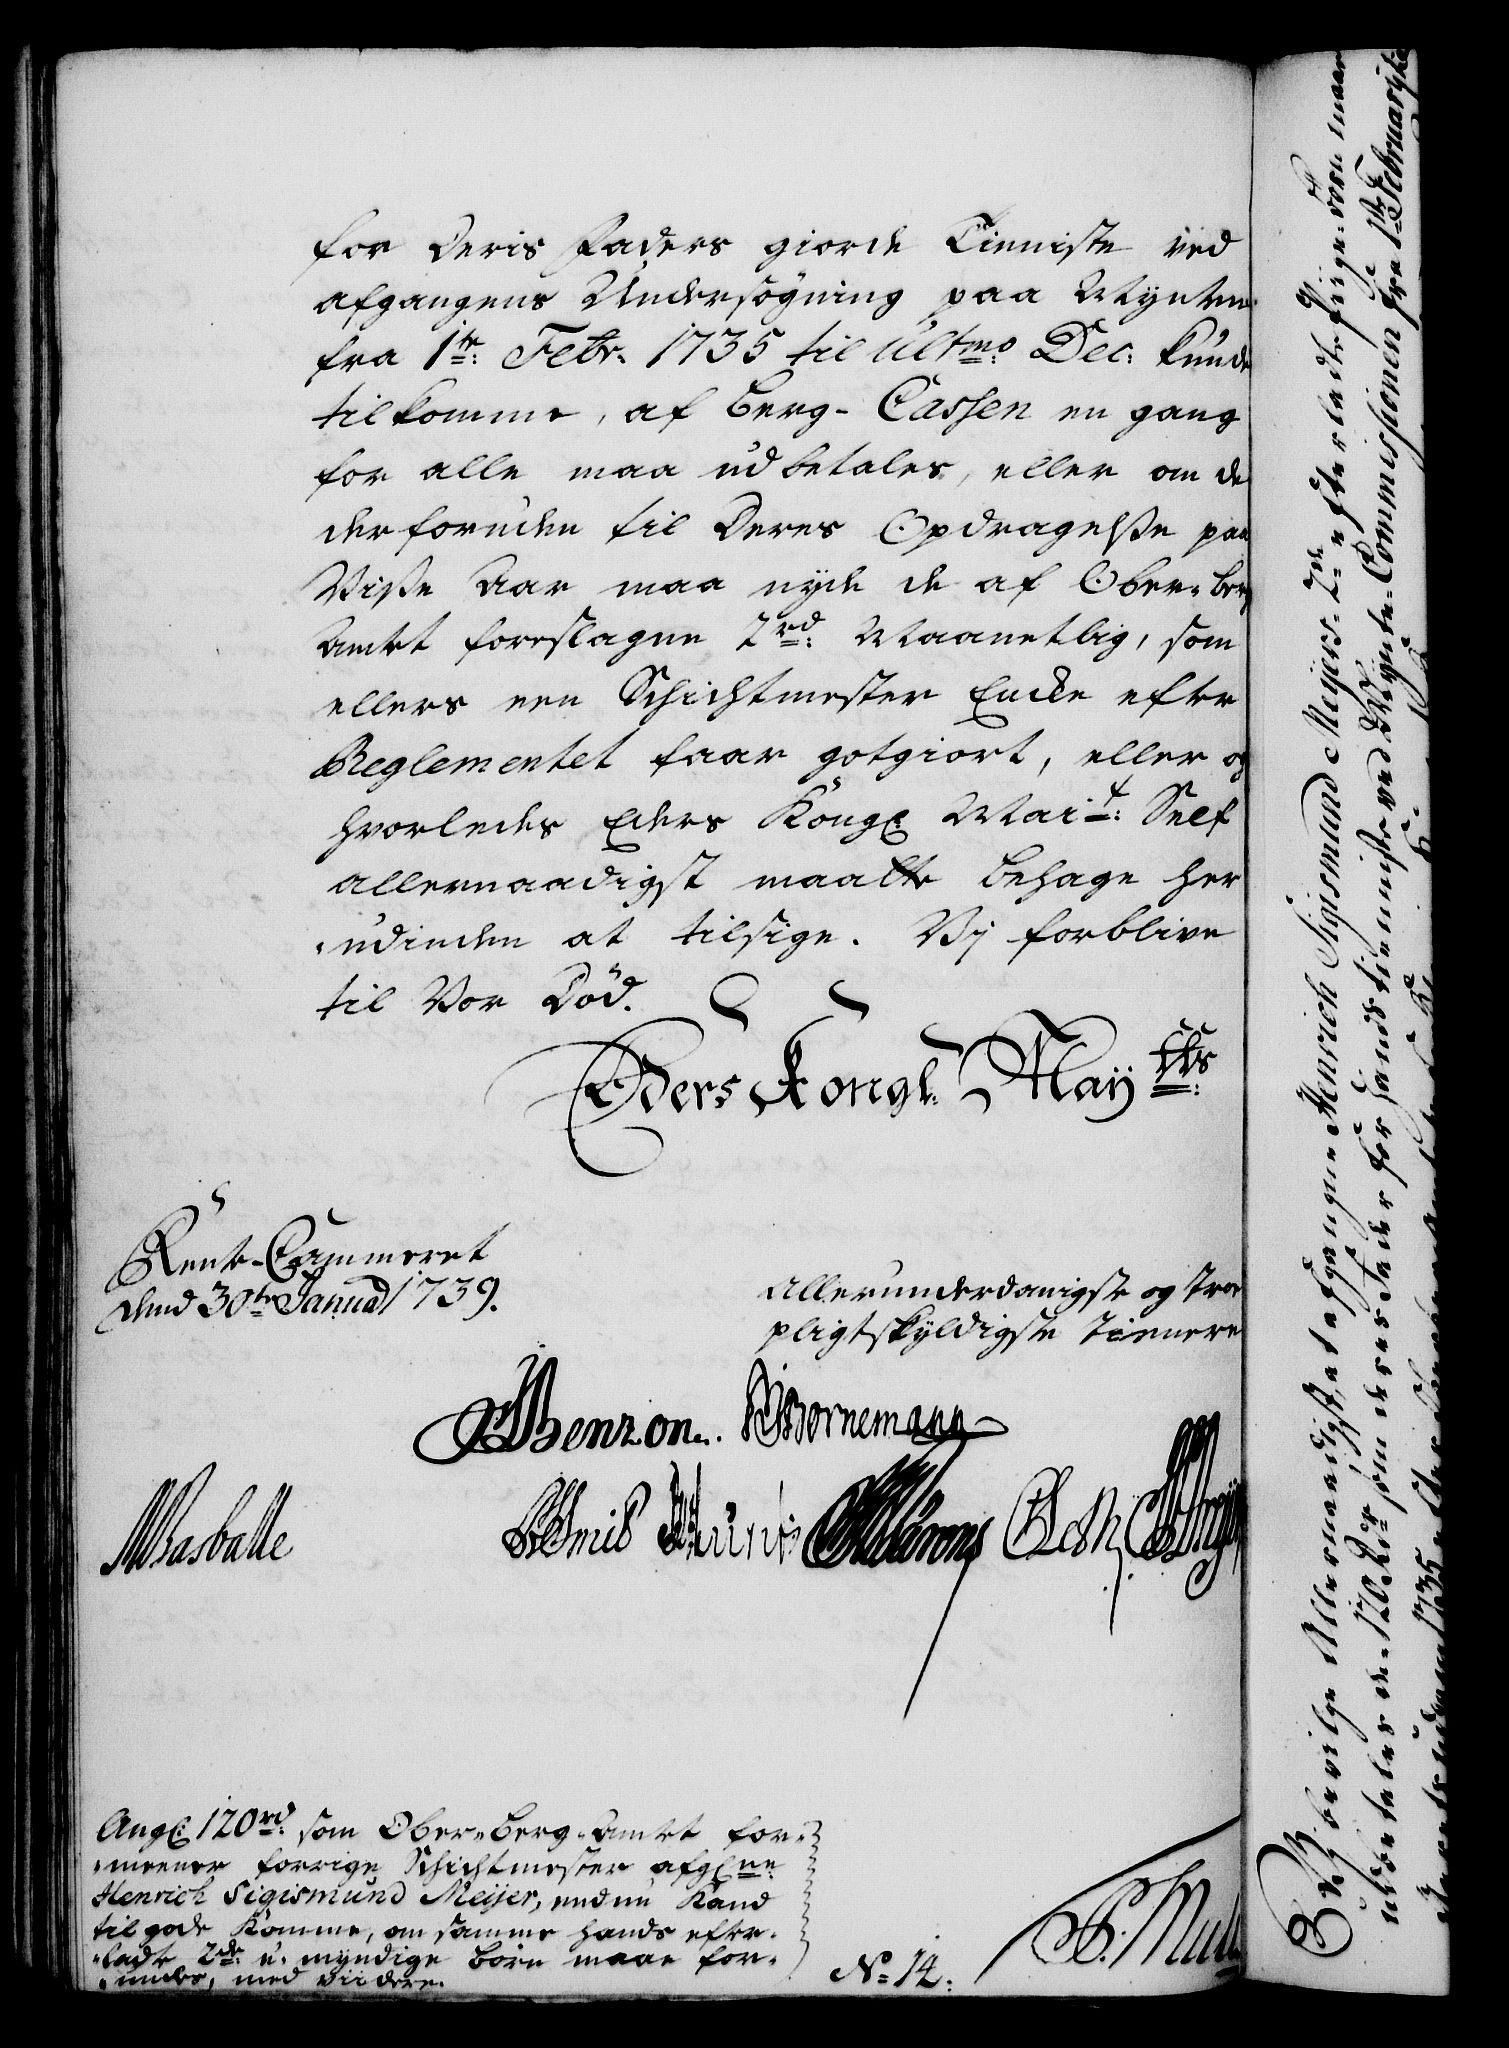 for deris Faders giorde Tieniste ved
afgangens Undersøgning paa Mynten
fra 1te: Febr. 1735 til Ultmo: Dec: kunde
tilkomme, af Berg-Cassen en gang
for alle maa udbetales, eller om de
derforuden til deres Opdragelse paa
Visse Aar maa nyde de af Ober-berg
Amtet foreslagne 2 rd: Maanetlig, som
ellers een Schichtmester Encke efter
Reglementet faar gotgiort, eller og
hvorledes Eders Kongl: Mait: Self
allernaadigst maatte behage her
udinden at tilsige. Vj forblive
til Vor Død.
Eders Kongl. Mayts:
Rente-Cammeret
dend 30te Januarj 1739.
Allerunderdanigste og troe
pligtskyldigste Tienere
Benzon. Bornemann
Basballe
Ang: 120 rd: som Ober-Berg-Amtet for-
meener forrige Schichtmester afgne:
Henrich Sigismund Meijer, endnu kand
til gode komme, om samme hands efter-
ladte 2de: u-myndige børn maae for-
undes, med viidere.
No 14.
Vj bevilge Allernaadigst, at afgangne Henrich Sigismund Meijers 2de efterladte
udbetales de 120 Rdr som deres Fader for hands tienniste ved Mynte-Commissionen fra 1te Februarij